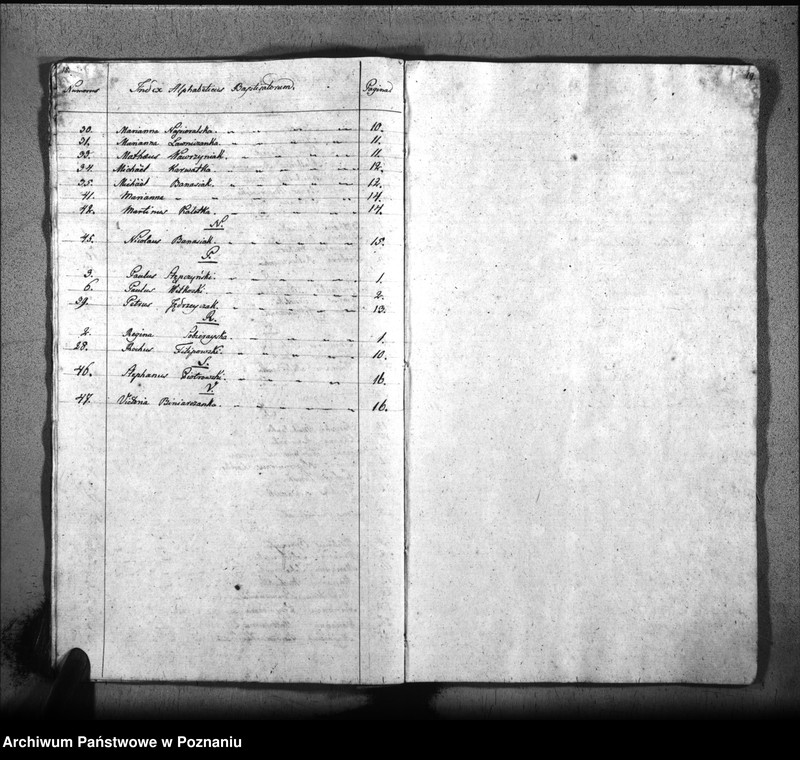 Numerus Index Alphabeticus Baptisatorum. Pagina
30. Marianna 10.
31. Marianna Ławniczanka. 11.
33. Mathaus Wawrzyniak. 11.
34. Michael Karwatka 12.
35. Michael Banasiak. 12.
41. Marianne 14.
42. Martinus Kaletka 14.
N.
45. Nicolaus Banasiak. 15.
P.
3. Paulus 1.
6. Paulus Witkoski. 2.
39. Petrus Jędrzeyczak. 13.
R.
2. Regina 1.
28. Rochus Filipowski. 10.
S.
46. Stephanus Piotrowski. 16.
V.
47. Victoria Biniarzanka. 16.
Archiwum Państwowe w Poznaniu